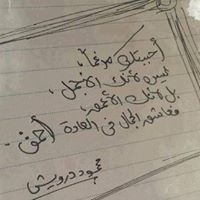 أحببتك مرغماً،
ليس لأنك الأجمل،
بل لأنك الأعمق،
فعاشق الجمال في العادة (أحمق ..
محمود درويش